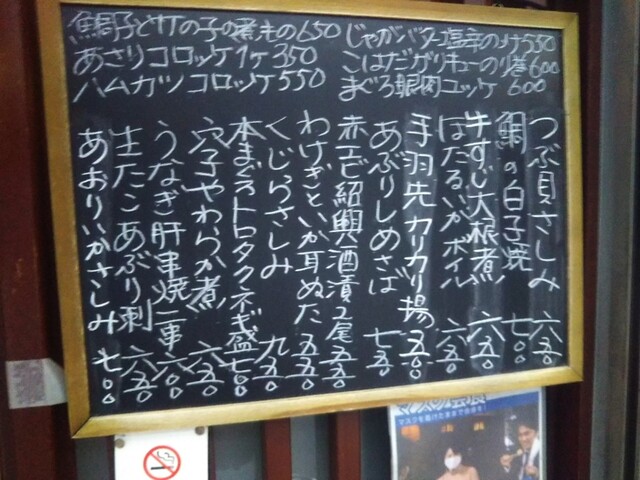 鯛子と竹の子の煮もの650
あさりコロッケ1ヶ350
ハムカツコロッケ550
じゃがバター塩辛のっけ550
こはだガリキューのり巻600
まぐろ眼肉ユッケ600
つぶ貝さしみ 六五〇
鯛の白子焼 七〇〇
牛すじ大根煮 六五〇
ほたるいかボイル 六五〇
手羽先カリカリ揚 五五〇
あぶりしめさば 七五〇
赤エビ紹興酒漬2尾 五五〇
わけぎといか耳ぬた 五五〇
くじらさしみ 九五〇
本まぐろトロタクネギ盛 七〇〇
穴子やわらか煮 六五〇
うなぎ肝串焼二串 六〇〇
生たこあぶり刺 六五〇
あおりいかさしみ 七〇〇
マスクを着けたままで会話を!